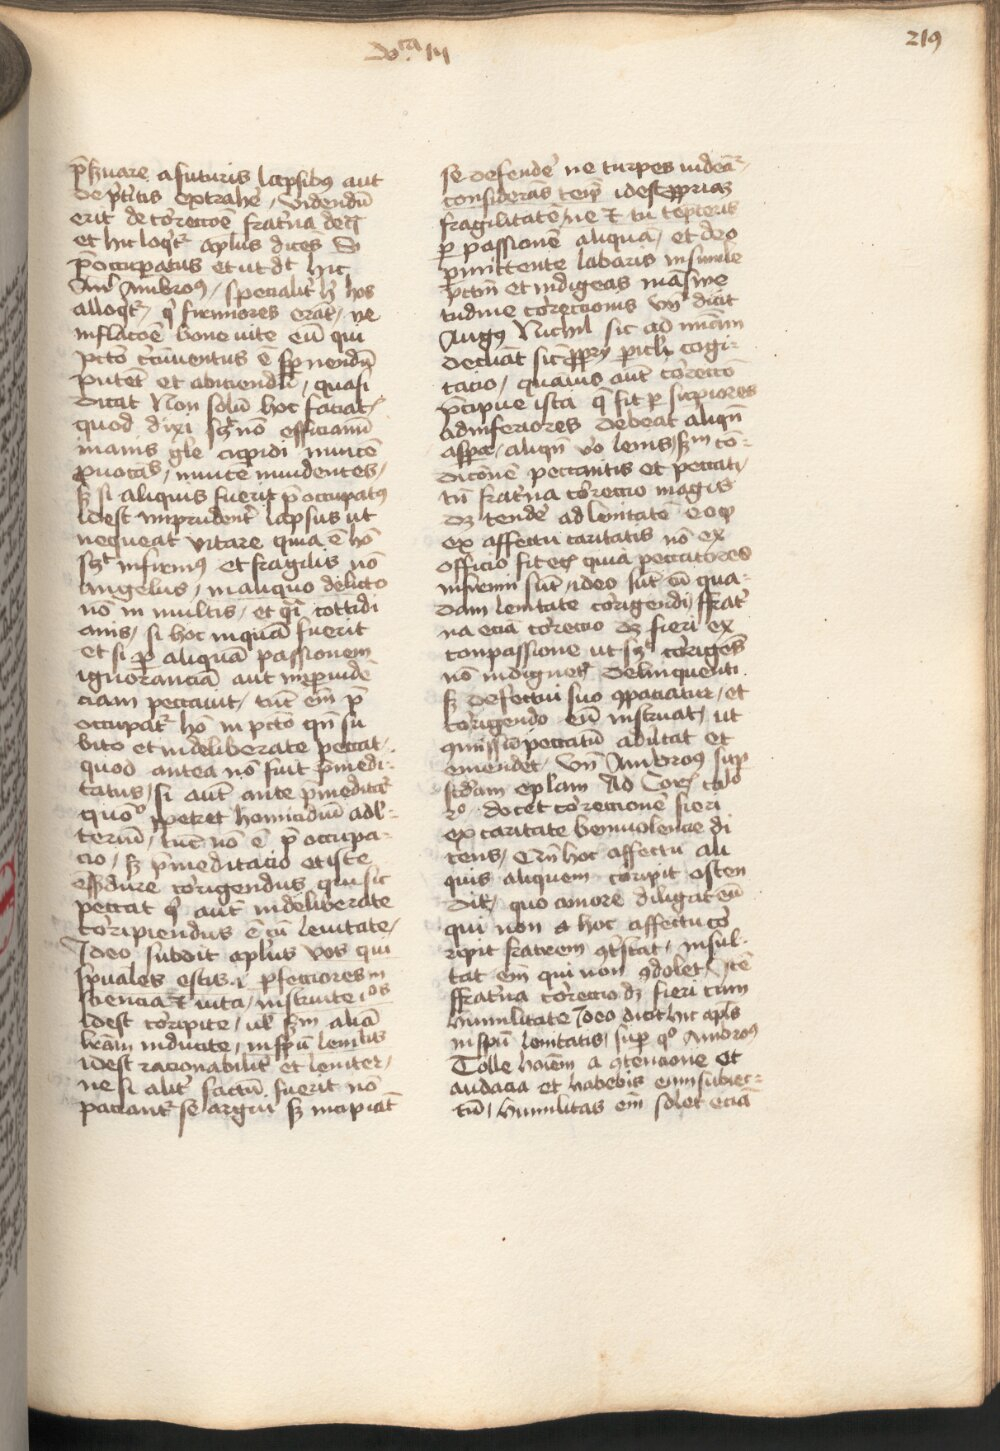 Doca iij
219
p̄ẜuare a futuris lapsibus aut
de p̄titis extrahe᷑ / Videndū
erit de correccōe frat᷑na de q̄
et hic loqt᷑ aplus dices Si
p̄occupatus et ut dt᷑ hic
Ambros9 / specialit᷑ hos
alloqt᷑ / qi firmiores erāt / ne
inflacōe bone uite eū qui
pctō cūentus e spnendū
putēt et abiciendū / quasi
dicat Non solū hoc faciat᷑
quod dixi sꝫ nō efficiamī
inanis gle cupidi inuicē
ꝓuocātes / inuicē inuidentes /
sꝫ si aliquis fuerit p̄occupatus
idest imprudent᷑ lapsus ut
nequeat vitare quia ē hō
infirmus et fragilis nō
angelus / in aliquo delicto
nō in multis / et qi cottidi
anis / si hoc inquā fuerit
et si ꝑ aliquā passionem
ignoranciā aut inprouidē
ciam peccauit / tūc em̄ p̄
occupat᷑ hō in pctō qn̄ su
bito et indeliberate peccat /
quod antea nō fuit p̄medi-
tatus / si aut᷑ ante p̄meditat᷑
quō ꝑpetret homicidiū adl᷑-
teriū / tūc nō ē p̄occupa-
cio / sꝫ p̄meditacio et iste
est dure corrigendus qui sic
peccat qi aut᷑ indeliberate
corripiendus e cū lenitate /
Ideo subdit aplus vos qui
spūales estis .i. ꝑfectiores in
sciencia et uita / instruite
idest corripite / ul᷑ sꝫm aliā
lrām inducite / in spū lenitatis
idest racionabilit᷑ et leniter /
ne si alit᷑ factū fuerit nō
paciant᷑ se argui sꝫ incipiāt
se defende᷑ ne turpes uideāt᷑
considerās teipm̄ idest ꝓpriaꝫ
fragilitatē / ne et tu tēpteris
ꝑ passionē aliquā / et deo
ꝑmittente labaris in simile
pctm̄ et indigeas māswe
tudine correccionis Vn̄ dicit
Augus Nichil sic ad miām
declinat sic ꝓprij picli cogi-
tacio / quāuis aut᷑ correccō
p̄cipue ista q̄ fit ꝑ supiores
ad inferiores debeat aliqn̄
aspa / aliqn̄ vo lenis / sꝫm cō-
dicōnē peccantis et peccati /
tn̄ frat᷑na correccio magis
dꝫ tende᷑ ad lenitatē eo qꝫ
ex affectu caritatis nō ex
officio fit etc̄ quia peccatores
infirmi sūt / ideo sūt cū qua-
dam lenitate corrigendi / ffrat᷑
na eciā correccio dꝫ fieri ex
conpassione ut sꝫ corrigens
nō indignet᷑ delinquenti
sꝫ defectui suo ꝯpaciatur / et
corrigendo eū instruat / ut
ꝯmissū peccatū abiciat et
emendet / Vn̄ Ambros9 sup
scdam eplam Ad Cor
docet correccionē fieri
ex caritate beniuolencie di
cens / Cum hoc affectu ali
quis aliquem coripit osten
dit / quo amore diligat eū
qui non a hoc affectu co᷑
ripit fratrem / insul-
tat em̄ qui non ꝯdolet / Itē
ffrat᷑na correccio dꝫ fieri cum
humilitate Ideo dicit hic apls
in spū lenitatis / sup qo Ambros9
Tolle hoiēm a ꝯtencione et
audacia et habebis eum subiec-
tū / humilitas em̄ solet eciā